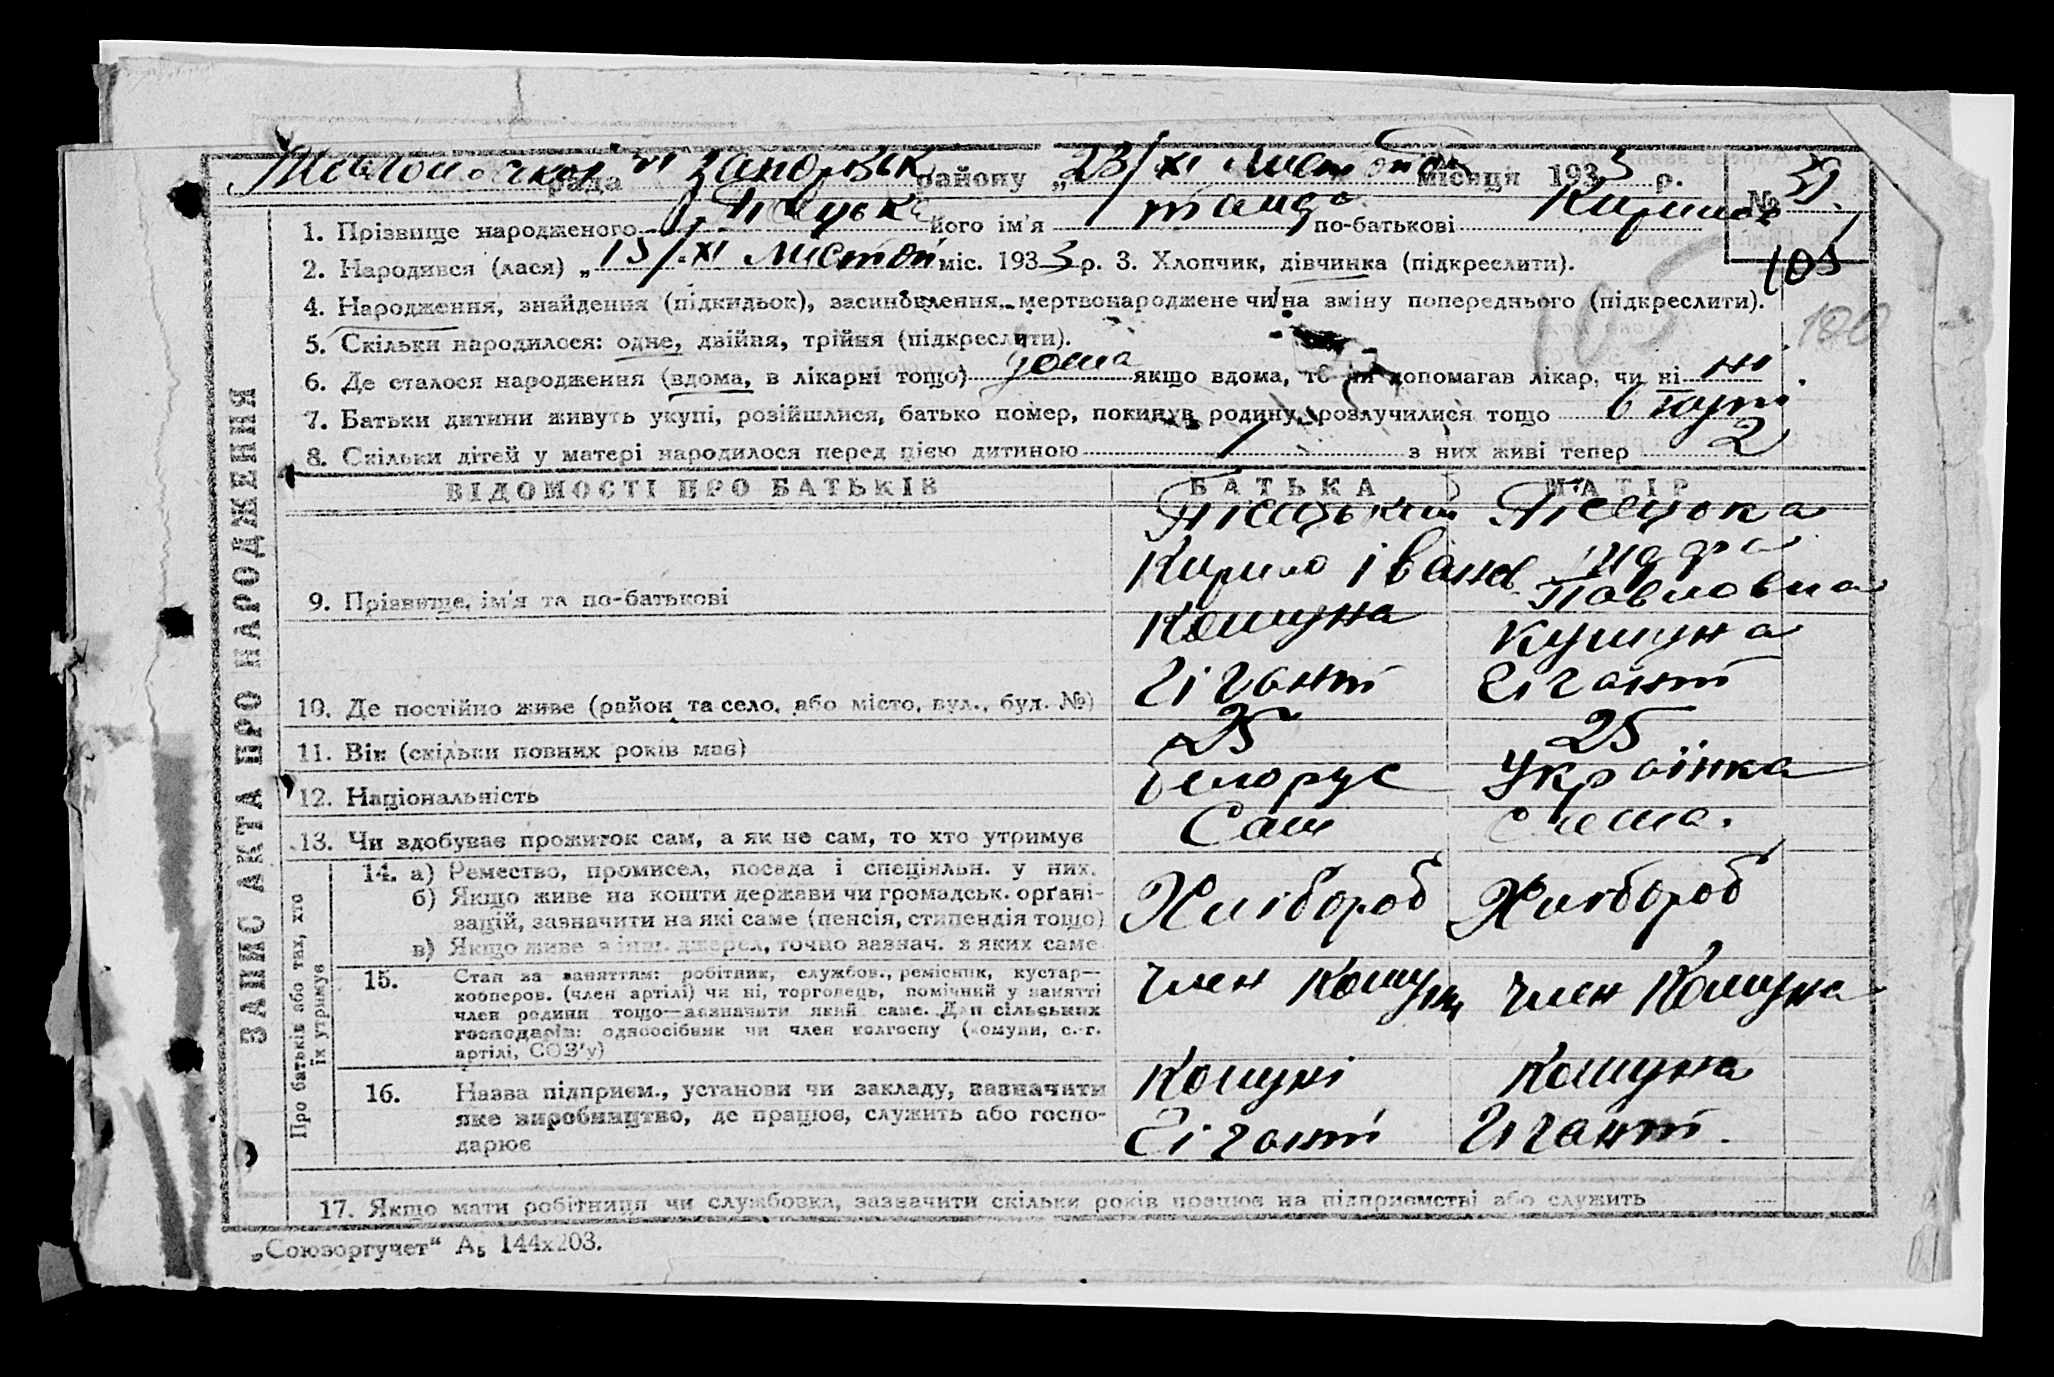 рада Запорізьк району „23/XI Листопад місяця 1933 р. № 39.
1. Прізвище народженого Пісецька його ім'я по-батькові Кирилов
105
2. Народився (лася) „15/XI Листоп міс. 1933 р. 3. Хлопчик, дівчинка (підкреслити).
4. Народження, знайдення (підкидьок), засиновлення, мертвонароджене чи на зміну попереднього (підкреслити).
105 180
5. Скільки народилося: одне, двійня, трійня (підкреслити).
6. Де сталося народження (вдома, в лікарні тощо) дома якщо вдома, то чи допомагав лікар, чи ні ні
7. Батьки дитини живуть укупі, розійшлися, батько помер, покинув родину, розлучилися тощо
8. Скільки дітей у матері народилося перед цією дитиною 1 з них живі тепер 2
ЗАПИС АКТА ПРО НАРОДЖЕННЯ
ВІДОМОСТІ ПРО БАТЬКІВ БАТЬКА МАТІР
9. Прізвище, ім'я та по-батькові Пісецький Кирило Іванов Пісецька Павловна
10. Де постійно живе (район та село, або місто, вул., буд. №) Комуна Гігант Кумуна Гігант
11. Вік (скільки повних років має) 25 25
12. Національність белорус Українка
13. Чи здобуває прожиток сам, а як не сам, то хто утримує Сам Сама.
Про батьків або тих, хто їх утримує
14. а) Ремество, промисел, посада і спеціяльн. у них.
б) Якщо живе на кошти держави чи громадськ. орґані-
зацій, зазначити на які саме (пенсія, стипендія тощо) Хлібороб Хлібороб
в) Якщо живе з інш. джерел, точно зазнач. з яких саме
15. Стан за заняттям: робітник, службов., ремісник, кустар—
кооперов. (член артілі) чи ні, торговець, помічний у занятті
член родини тощо—зазначити який саме. Для сільських
господарів: одноосібник чи член колгоспу (комуни, с.-г.
артілі, СОЗ'у) член Комуни член Комуна
16. Назва підприєм., установи чи закладу, зазначити
яке виробництво, де працює, служить або госпо-
дарює Комуні Гігант Комуна Гігант.
17. Якщо мати робітниця чи службовка, зазначити скільки років працює на підприємстві або служить
„Союзоргучет“ А5 144х203.